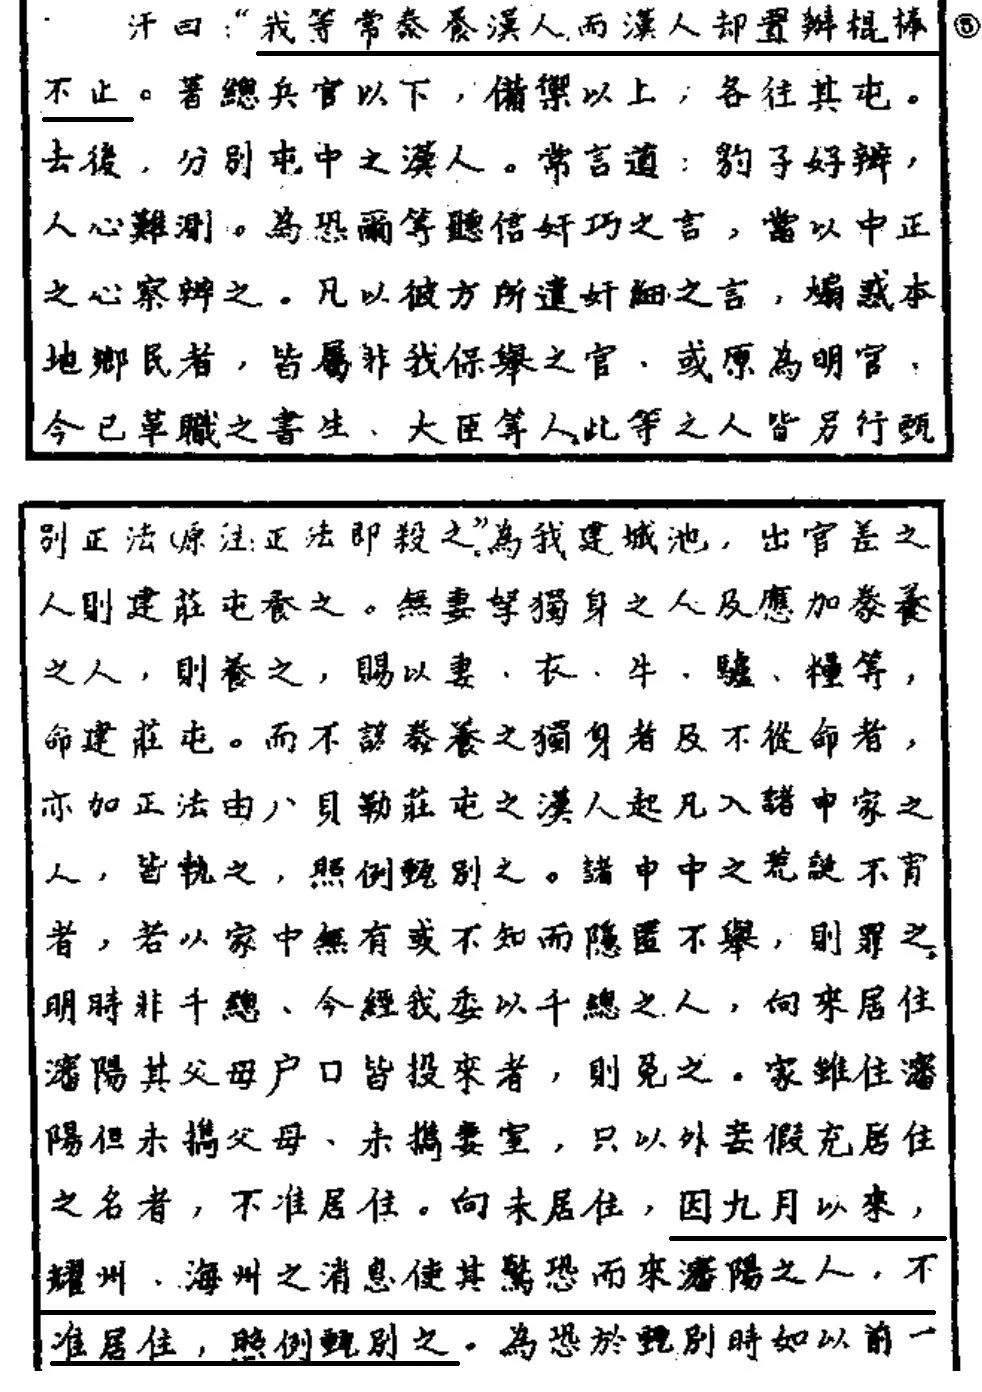 汗曰："我等常豢養漢人,而漢人却置辦棍棒⑧
不止。著總兵官以下，備禦以上，各往其屯。
去後，分別屯中之漢人。常言道：豹子好辨，
人心難測。為恐爾等聽信奸巧之言，當以中正
之心察辨之。凡以彼方所遣奸細之言，煽惑本
地鄉民者，皆屬非我保舉之官、或原為明官、
今已革職之書生、大臣等人,此等之人皆另行甄
別正法(原注:正法即殺之"。為我建城池，出官差之
人則建莊屯養之。無妻孥獨身之人及應加豢養
之人，則養之，賜以妻、衣、牛、驢、糧等，
命建莊屯。而不該豢養之獨身者及不從命者，
亦加正法由八貝勒莊屯之漢人起凡入諸申家之
人，皆執之，照例甄別之。諸申中之荒誕不肖
者，若以家中無有或不知而隱匿不舉，則罪之。
明時非千總、今經我委以千總之人，向來居住
瀋陽其父母户口皆投來者，則免之。家雖住瀋
陽但未攜父母、未攜妻室，只以外妾假充居住
之名者，不准居住。向未居住，因九月以來，
耀州、海州之消息使其驚恐而來瀋陽之人，不
准居住，照例甄別之。為恐於甄別時如以前一